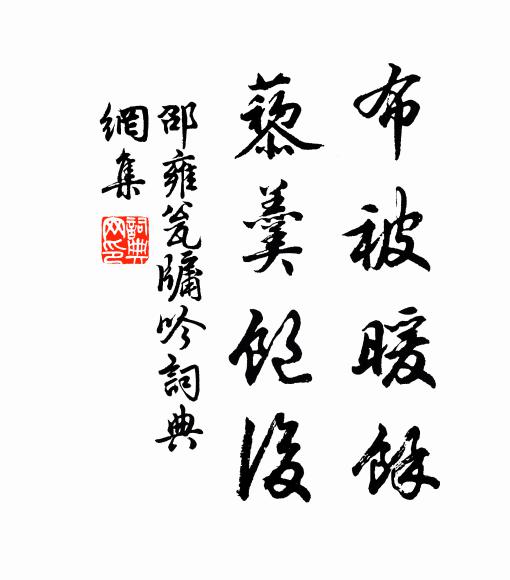 布被暖餘
藜羹飽後
邵雍瓮牖吟詞典
網集
詞典網印